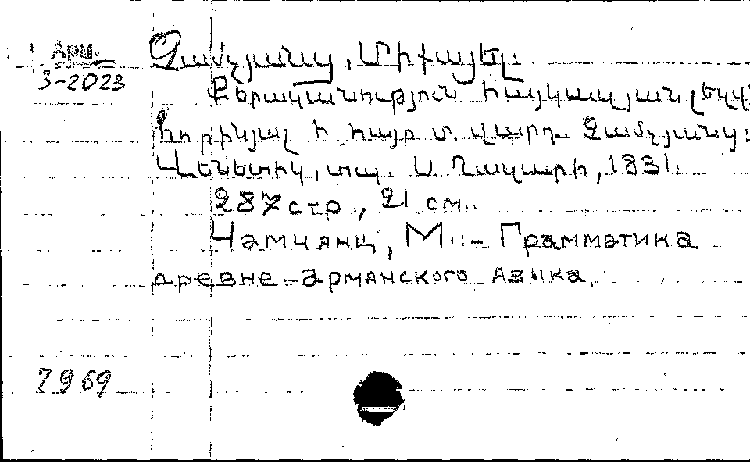 Арм.
3-2023
Չամչյանց, Միքայել.
Քերականություն հայկազյան լեզվի
հորինյալ ի հայր Մ. վարդ. Չամչյանց:
Վենետիկ, տպ. Ս. Ղազարի, 1831.
287 стр, 21 см.
Чамчянц, М. - Грамматика
древне-армянского языка.
7969